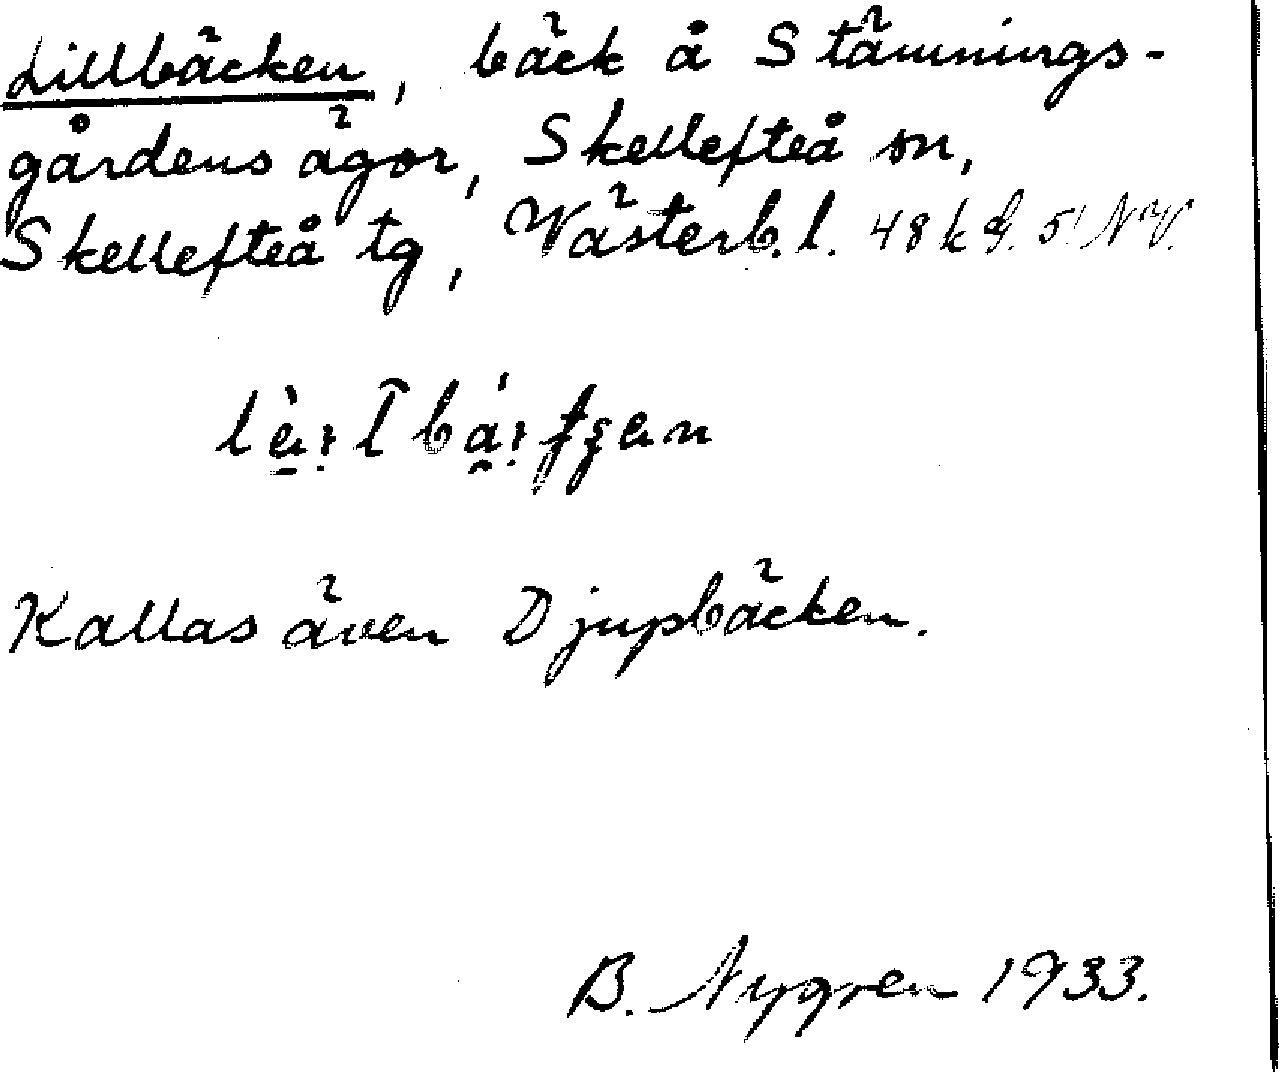 Lillbäcken, bäck å Stämnings-
gårdens ägor, Skellefteå sn,
Skellefteå tg, Västerb. l. 48 k
Kallas även Djupbäcken.
B. Nygren 1933.